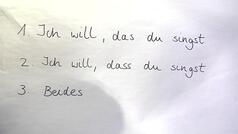 1. Ich will, das du singst
2. Ich will, dass du singst
3. Beides